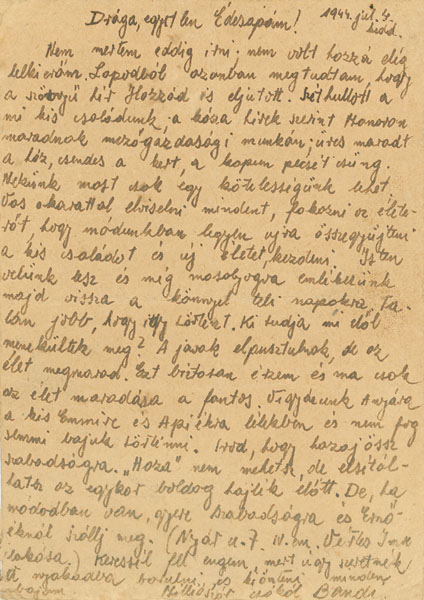 1944. júl. 4.
Drága, egyetlen Édesapám!
Nem mertem eddig írni, nem volt hozzá elég
lelki erőm. Lapodból azonban megtudtam, hogy
a szörnyű hír Hozzád is eljutott. Széthullott a
mi kis családunk, a kósza hírek szerint Monoron
maradnak mezőgazdasági munkán, üres maradt
a ház, csendes a kert, a kapun pecsét csüng.
Nekünk most csak egy kötelességünk lehet.
Vas akarattal elviselni mindent, fokozni az élet-
erőt, hogy módunkban legyen újra összegyűjteni
a kis családot és új életet kezdeni. Isten
velünk lesz és még mosolyogva emlékezünk
majd vissza a könnyel teli napokra. Ta-
lán jobb, hogy így történt. Ki tudja mi elől
menekültek meg? A javak elpusztulnak, de az
élet megmarad. Ezt biztosan érzem és ma csak
az élet maradása a fontos. Vigyázunk Anyára
a kis Emmire és Apiékra lélekben és nem fog
semmi bajuk történni. Írod, hogy hazajössz
szabadságra. "Haza" nem mehetsz, de elsétál-
hatsz az egykor boldog hajlék előtt. De, ha
módodban van, gyere szabadságra és Ernő-
éknél szállj meg. (Nyár u. 7. IV. em. Vértes Imre
lakása.) Keressél fel engem, mert úgy szeretnék
a nyakadba borulni és kiönteni minden
bajom Milliószor csókol Bandi